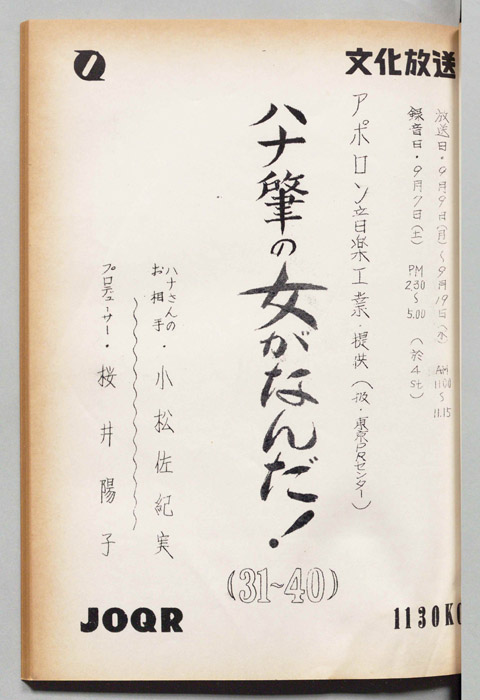 文化放送
放送日・9月9日(月)〜9月19日(木) AM 11.00〜11.15
録音日・9月7日(土) PM 2.30〜5.00 (於4st)
アポロン音楽工業・提供(扱・東京PRセンター)
ハナ肇の女がなんだ!
(31~40)
ハナさんの
お相手・小松佐紀実
プロデューサー・桜井陽子
JOQR
1130KC